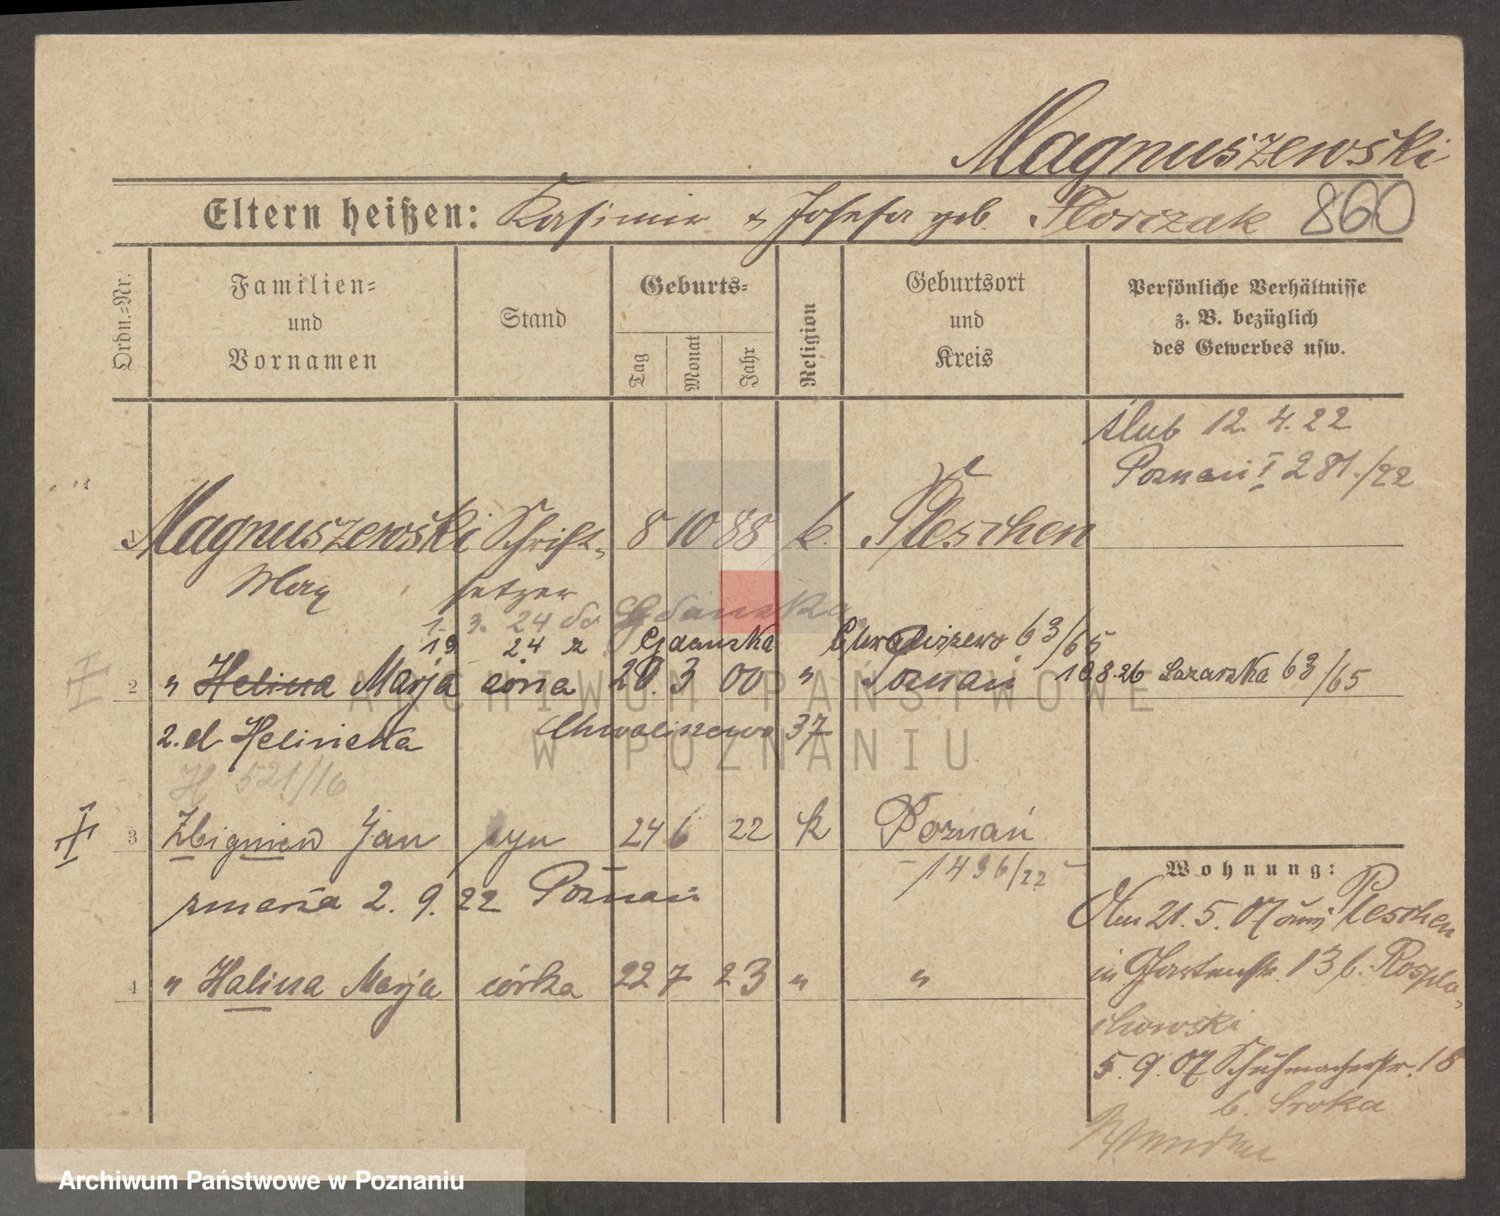 Magnuszewski
Eltern heißen: Kasimir & Josefa geb. Florczak 860
Ordn.-Nr.
Familien-
und
Vornamen
Stand
Geburts-
Tag
Monat
Jahr
Religion
Geburtsort
und
Kreis
Persönliche Verhältnisse
z. B. bezüglich
des Gewerbes usw.
ślub 12. 4. 22
Poznań I 281./22
1 Magnuszewski Schrift- 8 10 88 k. Pleschen
setzer
1. 3. 24 do Gdańska
19 24 z Gdańska Chwaliszewo 63/65
2 " Helina Marja żona 20. 3 00 " Poznań 10.8.26 Łazarska 63/65
2. d Helinieka Chwaliszewo 37
H 521/16
3 Zbigniew Jan syn 24 6 22 k Poznań
1496/22
zmarła 2. 9. 22 Poznań
4 " Halina Marja córka 22 7 23 " "
Wohnung:
Am 21. 5. 07 aus Pleschen
in Gartenstr. 13 b. Rospla-
chowski
5. 9. 07 Schuhmacherstr. 18
b. Sroka
ARCHIWUM PAŃSTWOWE
W POZNANIU
Archiwum Państwowe w Poznaniu